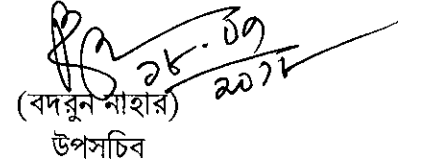 ১৮.০৭
২০১৮
(বদরুন নাহার)
উপসচিব